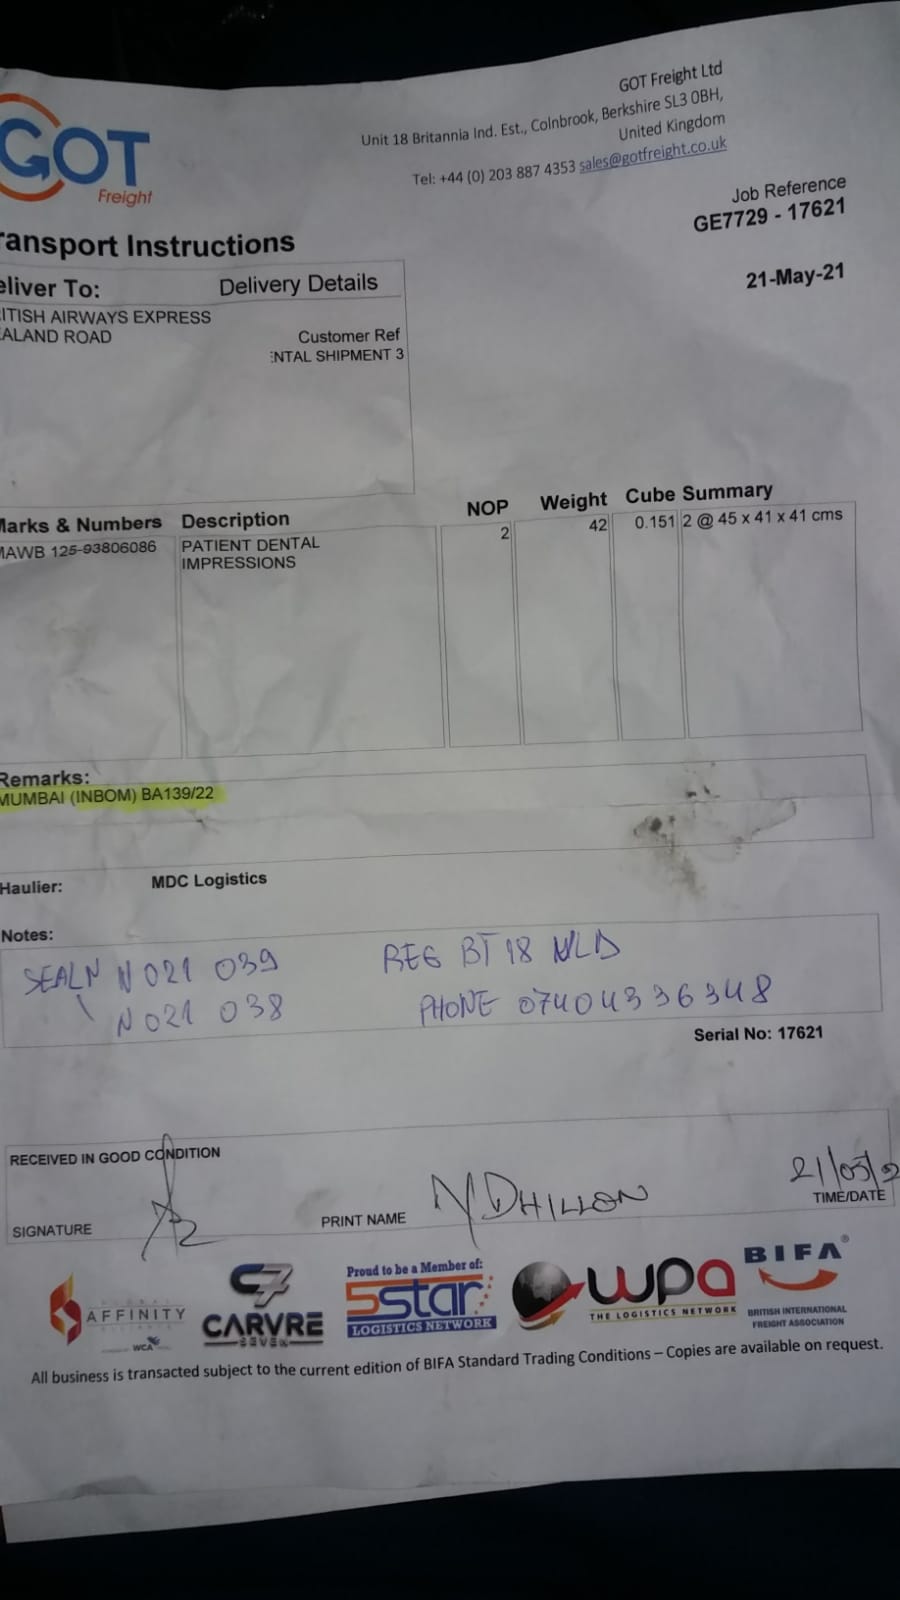 GOT
Freight
GOT Freight Ltd
Unit 18 Britannia Ind. Est., Colnbrook, Berkshire SL3 0BH,
United Kingdom
Tel: +44 (0) 203 887 4353 sales@gotfreight.co.uk
Job Reference
GE7729 - 17621
21-May-21
ransport Instructions
eliver To:
Delivery Details
ITISH AIRWAYS EXPRESS
ALAND ROAD
Customer Ref
ENTAL SHIPMENT 3
Marks & Numbers Description NOP Weight Cube Summary
MAWB 125-93806086 PATIENT DENTAL 2 42 0.151 2 @ 45 x 41 x 41 cms
IMPRESSIONS
Remarks:
MUMBAI (INBOM) BA139/22
Haulier: MDC Logistics
Notes:
SEALN N021 039 REG BT18 NLD
N021 038 PHONE 07404336348
Serial No: 17621
RECEIVED IN GOOD CONDITION
SIGNATURE
PRINT NAME N DHILLON
21/05/2
TIME/DATE
AFFINITY
WCA
C7
CARVRE
SEVEN
Proud to be a Member of:
5star
LOGISTICS NETWORK
wpa
THE LOGISTICS NETWORK
BIFA®
BRITISH INTERNATIONAL
FREIGHT ASSOCIATION
All business is transacted subject to the current edition of BIFA Standard Trading Conditions – Copies are available on request.